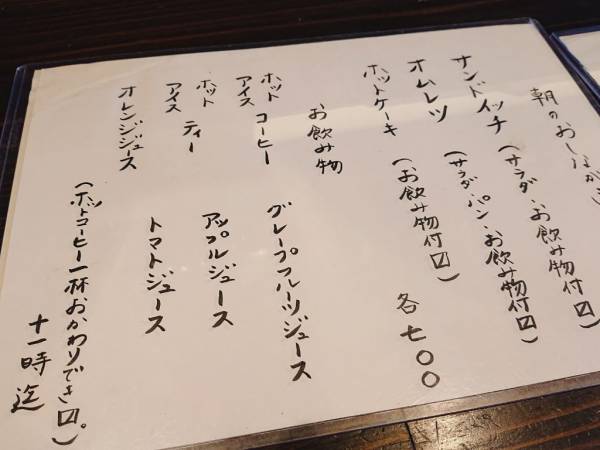 朝のおしながき
サンドイッチ (サラダ・お飲み物付〼)
オムレツ (サラダ・パン・お飲み物付〼)
ホットケーキ (お飲み物付〼) 各七〇〇
お飲み物
ホット アイス コーヒー グレープフルーツジュース
ホット アイス ティー アップルジュース
オレンジジュース トマトジュース
(ホットコーヒー一杯おかわりでき〼。)
十一時迄